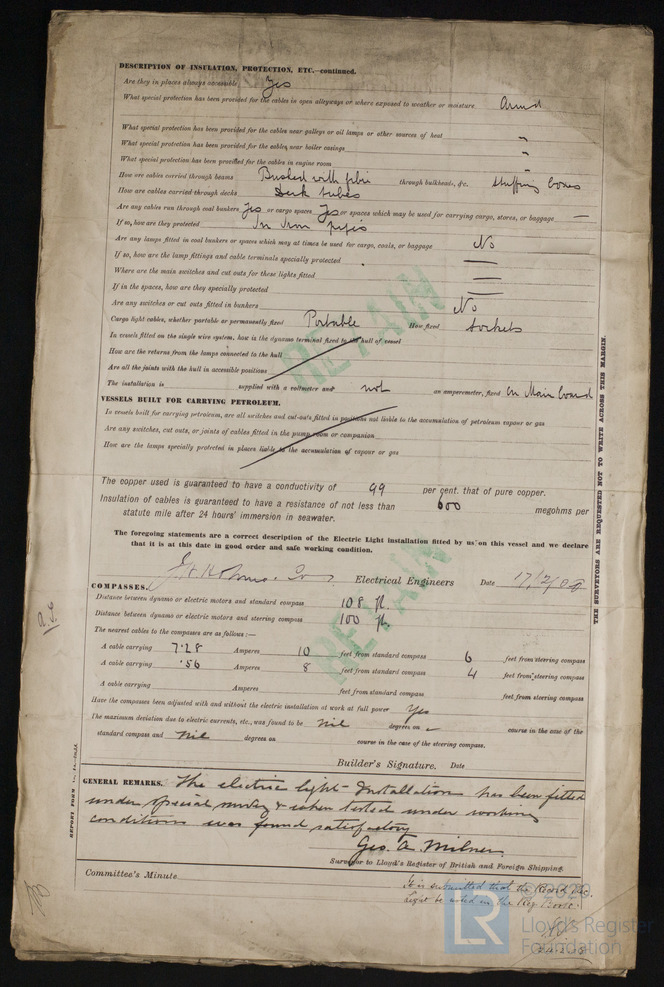 DESCRIPTION OF INSULATION, PROTECTION, ETC.—continued.
Are they in places always accessible Yes
What special protection has been provided for the cables in open alleyways or where exposed to weather or moisture. Armd
What special protection has been provided for the cables near galleys or oil lamps or other sources of heat "
What special protection has been provided for the cables near boiler casings "
What special protection has been provided for the cables in engine room "
How are cables carried through beams Bushed with fibre through bulkheads, &c. Stuffing boxes
How are cables carried through decks Deck tubes
Are any cables run through coal bunkers Yes or cargo spaces Yes or spaces which may be used for carrying cargo, stores, or baggage —
If so, how are they protected In Iron pipes
Are any lamps fitted in coal bunkers or spaces which may at times be used for cargo, coals, or baggage No
If so, how are the lamp fittings and cable terminals specially protected —
Where are the main switches and cut outs for these lights fitted —
If in the spaces, how are they specially protected —
Are any switches or cut outs fitted in bunkers No
Cargo light cables, whether portable or permanently fixed Portable How fixed Sockets
In vessels fitted on the single wire system, how is the dynamo terminal fixed to the hull of vessel
How are the returns from the lamps connected to the hull
Are all the joints with the hull in accessible positions
The installation is supplied with a voltmeter and not an amperemeter, fixed On Main board
VESSELS BUILT FOR CARRYING PETROLEUM.
In vessels built for carrying petroleum, are all switches and cut-outs fitted in positions not liable to the accumulation of petroleum vapour or gas
Are any switches, cut outs, or joints of cables fitted in the pump room or companion
How are the lamps specially protected in places liable to the accumulation of vapour or gas
The copper used is guaranteed to have a conductivity of 99 per cent. that of pure copper.
Insulation of cables is guaranteed to have a resistance of not less than 600 megohms per
statute mile after 24 hours' immersion in seawater.
The foregoing statements are a correct description of the Electric Light installation fitted by us on this vessel and we declare
that it is at this date in good order and safe working condition.
Electrical Engineers Date 17/2/08
COMPASSES.
Distance between dynamo or electric motors and standard compass 108 ft.
Distance between dynamo or electric motors and steering compass 100 ft.
The nearest cables to the compasses are as follows:—
A cable carrying 7.28 Amperes 10 feet from standard compass 6 feet from steering compass
A cable carrying .56 Amperes 8 feet from standard compass 4 feet from steering compass
A cable carrying Amperes feet from standard compass feet from steering compass
Have the compasses been adjusted with and without the electric installation at work at full power Yes
The maximum deviation due to electric currents, etc., was found to be Nil degrees on — course in the case of the
standard compass and Nil degrees on course in the case of the steering compass.
Builder's Signature. Date
GENERAL REMARKS. The electric light Installation has been fitted
under special survey & when tested under working
conditions was found satisfactory
Geo. A. Milner
Surveyor to Lloyd's Register of British and Foreign Shipping.
Committee's Minute
It is submitted that the Record Elec.
Light be noted in the Reg. Book.
THE SURVEYORS ARE REQUESTED NOT TO WRITE ACROSS THIS MARGIN.
RETAIN
RETAIN
© 2020
LR
Lloyd's Register
Foundation